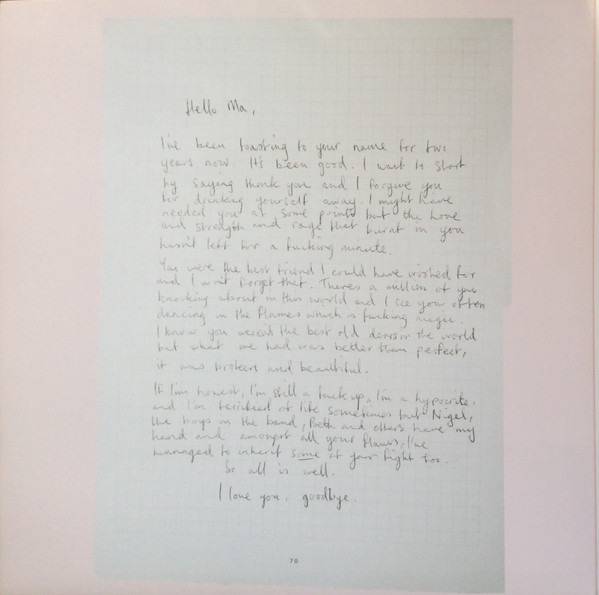 Hello Ma,
I've been toasting to your name for two
years now. It's been good. I want to start
by saying thank you and I forgive you
for drinking yourself away. I might have
needed you at some points but the love
and strength and rage that burnt in you
hasn't left for a fucking minute.
You were the best friend I could have wished for
and I won't forget that. Theres a million of you
knocking about in this world and I see you often
dancing in the flames which is fucking magic.
I know you weren't the best old in the world
but what we had was better than perfect,
it was broken and beautiful.
If I'm honest, I'm still a fuck up, I'm a hypocrite.
and I'm terrified of life sometimes but Nigel,
the boys in the band, Beth and others have my
hand and amongst all your flaws, I've
managed to inherit some of your fight too.
So all is well.
I love you. goodbye.
70